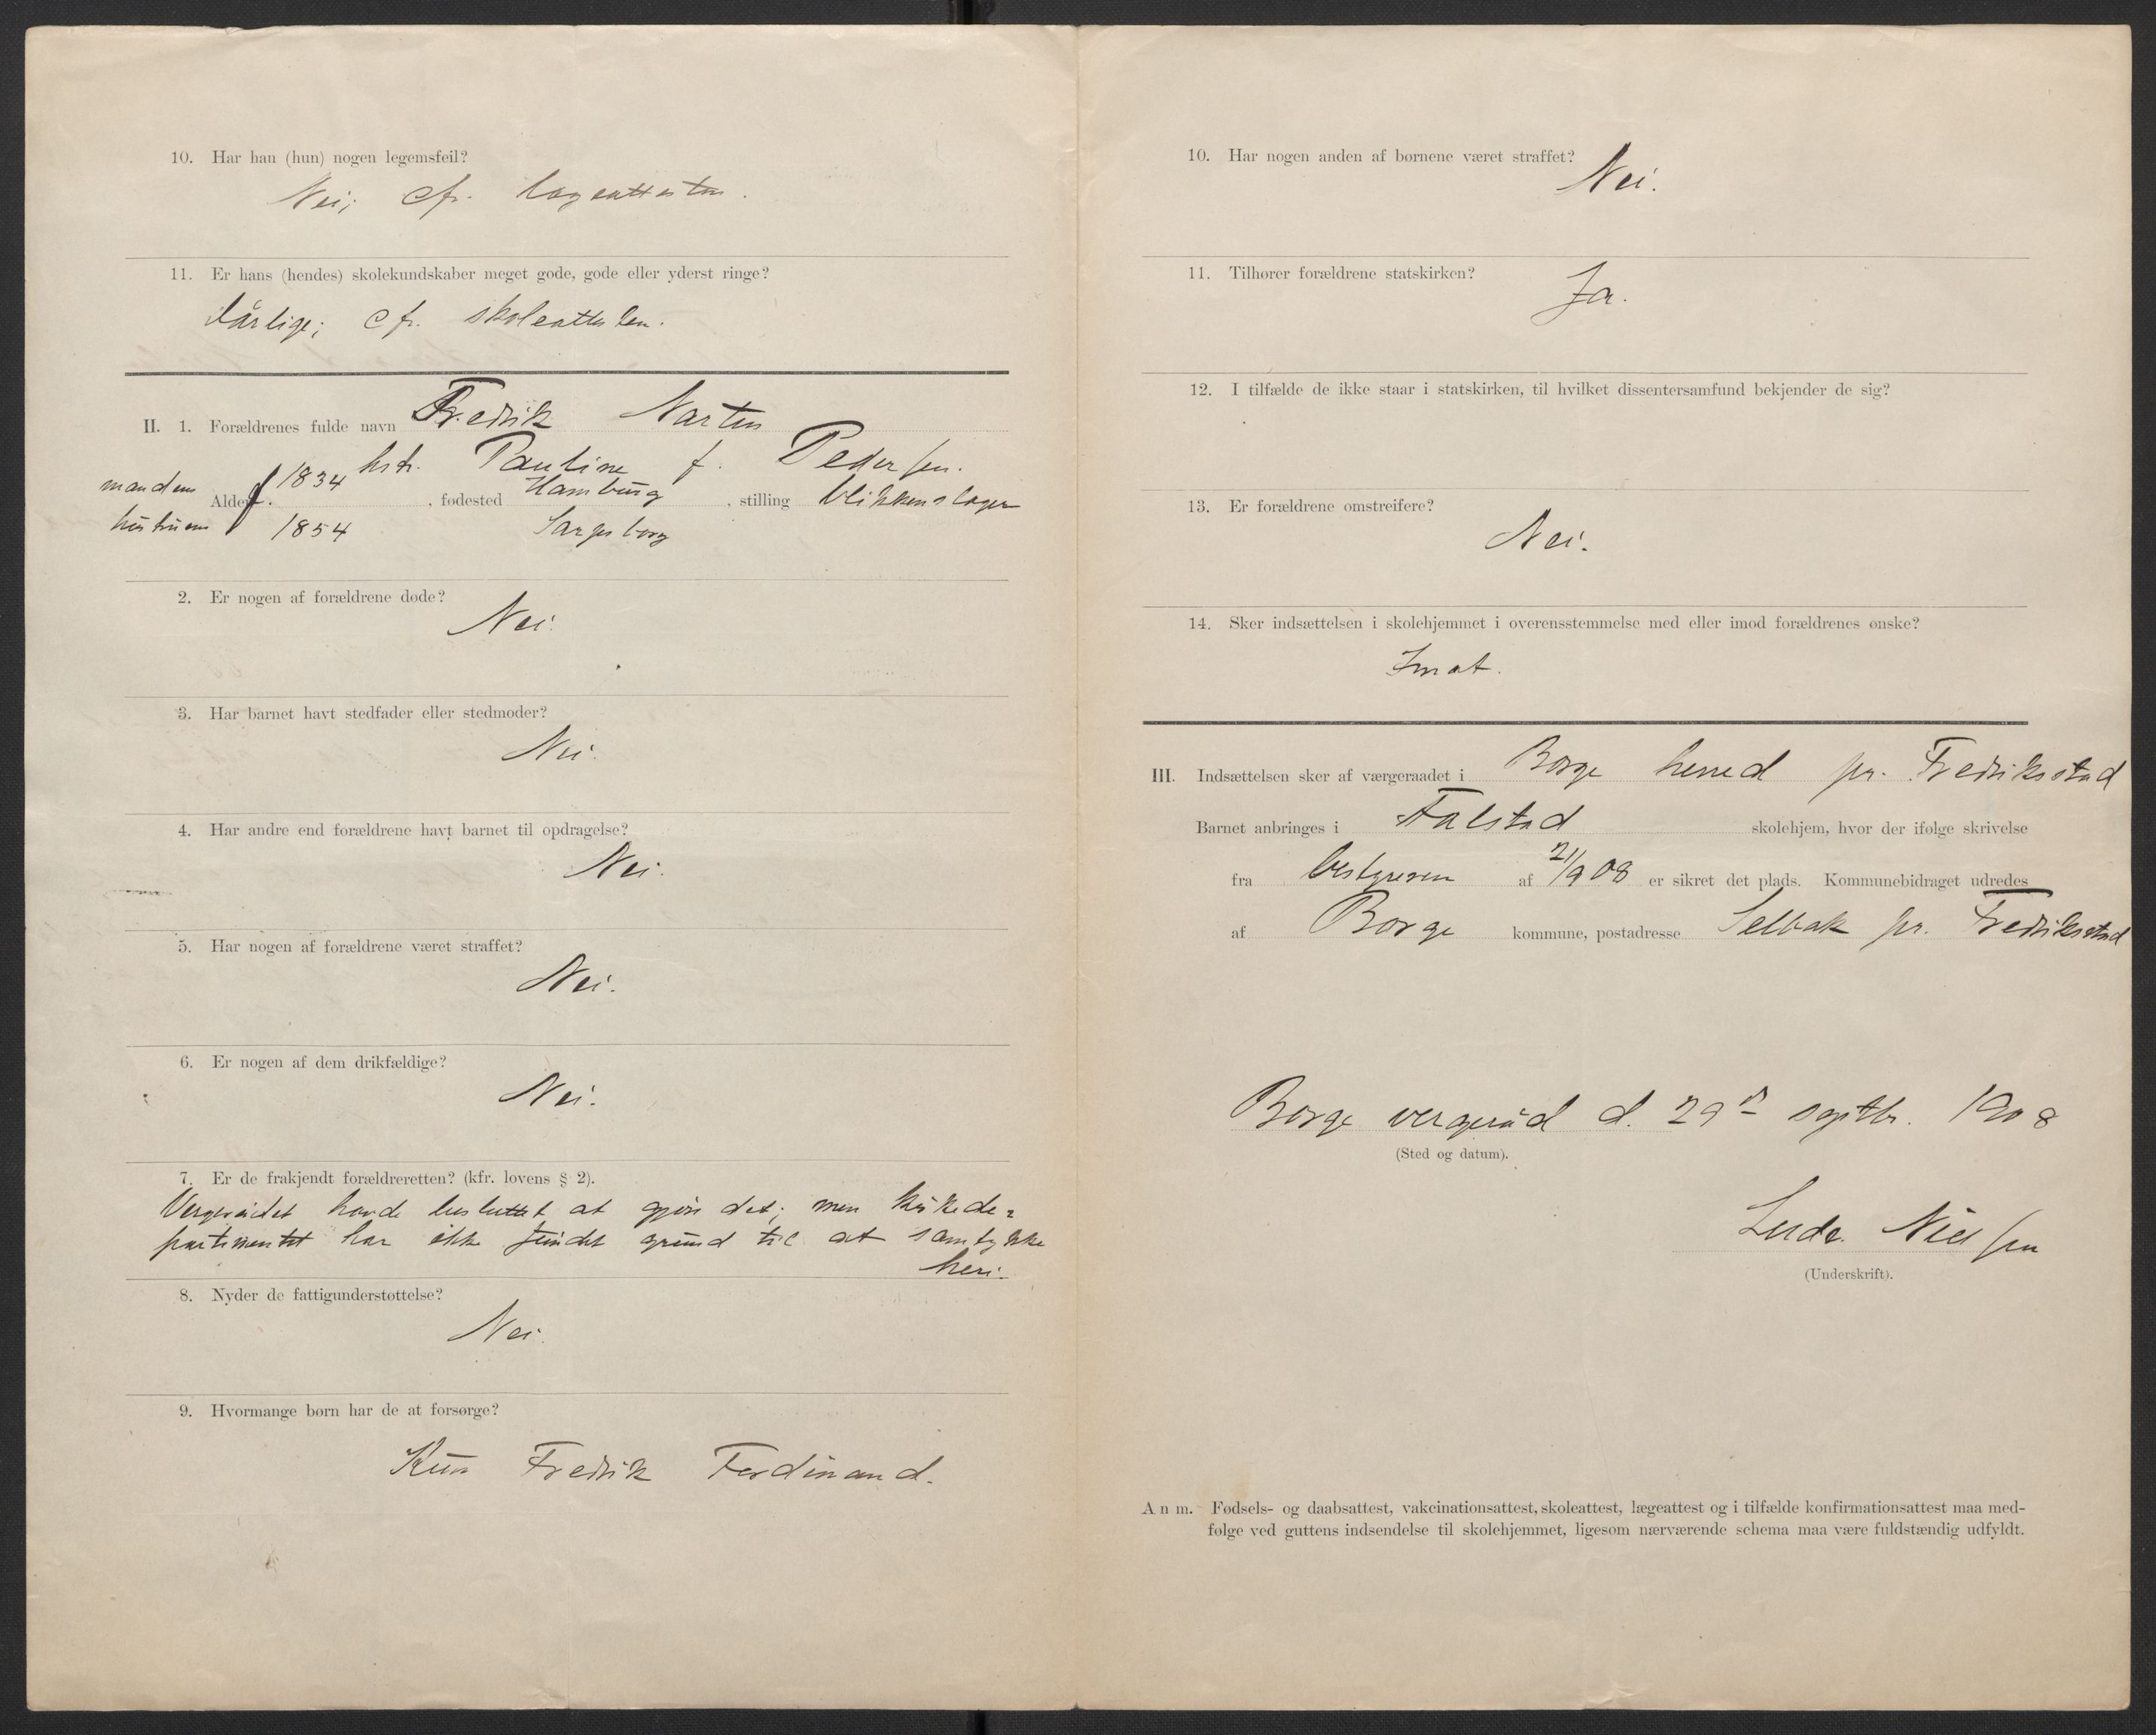 10. Har han (hun) nogen legemsfeil?
Nei; cfr. lægeattesten.
11. Er hans (hendes) skolekundskaber meget gode, gode eller yderst ringe?
Dårlige; cfr. skoleattesten.
II. 1. Forældrenes fulde navn Fredrik Narten
hstr. Pauline f. Pedersen.
manden Alder. 1834, fødested Hamburg, stilling blikkenslager
hustruen 1854 Sarpsborg
2. Er nogen af forældrene døde?
Nei.
3. Har barnet havt stedfader eller stedmoder?
Nei.
4. Har andre end forældrene havt barnet til opdragelse?
Nei.
5. Har nogen af forældrene været straffet?
Nei.
6. Er nogen af dem drikfældige?
Nei.
7. Er de frakjendt forældreretten? (kfr. lovens § 2).
Vergerådet havde besluttet at gjøre det; men kirkede-
partimentet har ikke fundet grund til at samtykke
heri.
8. Nyder de fattigunderstøttelse?
Nei.
9. Hvormange børn har de at forsørge?
Kun Fredrik Ferdinand.
10. Har nogen anden af børnene været straffet?
Nei.
11. Tilhører forældrene statskirken?
Ja.
12. I tilfælde de ikke staar i statskirken, til hvilket dissentersamfund bekjender de sig?
13. Er forældrene omstreifere?
Nei.
14. Sker indsættelsen i skolehjemmet i overensstemmelse med eller imod forældrenes ønske?
Imot.
III. Indsættelsen sker af værgeraadet i Borge herred pr. Fredriksstad
Barnet anbringes i Falstad skolehjem, hvor der ifølge skrivelse
fra bestyreren af 21/9 08 er sikret det plads. Kommunebidraget udredes
af Borge kommune, postadresse Selbak pr. Fredriksstad
Borge vergeråd d. 29de septbr. 1908
(Sted og datum).
Ludv. Nielsen
(Underskrift).
Anm. Fødsels- og daabsattest, vakcinationsattest, skoleattest, lægeattest og i tilfælde konfirmationsattest maa med-
følge ved guttens indsendelse til skolehjemmet, ligesom nærværende schema maa være fuldstændig udfyldt.